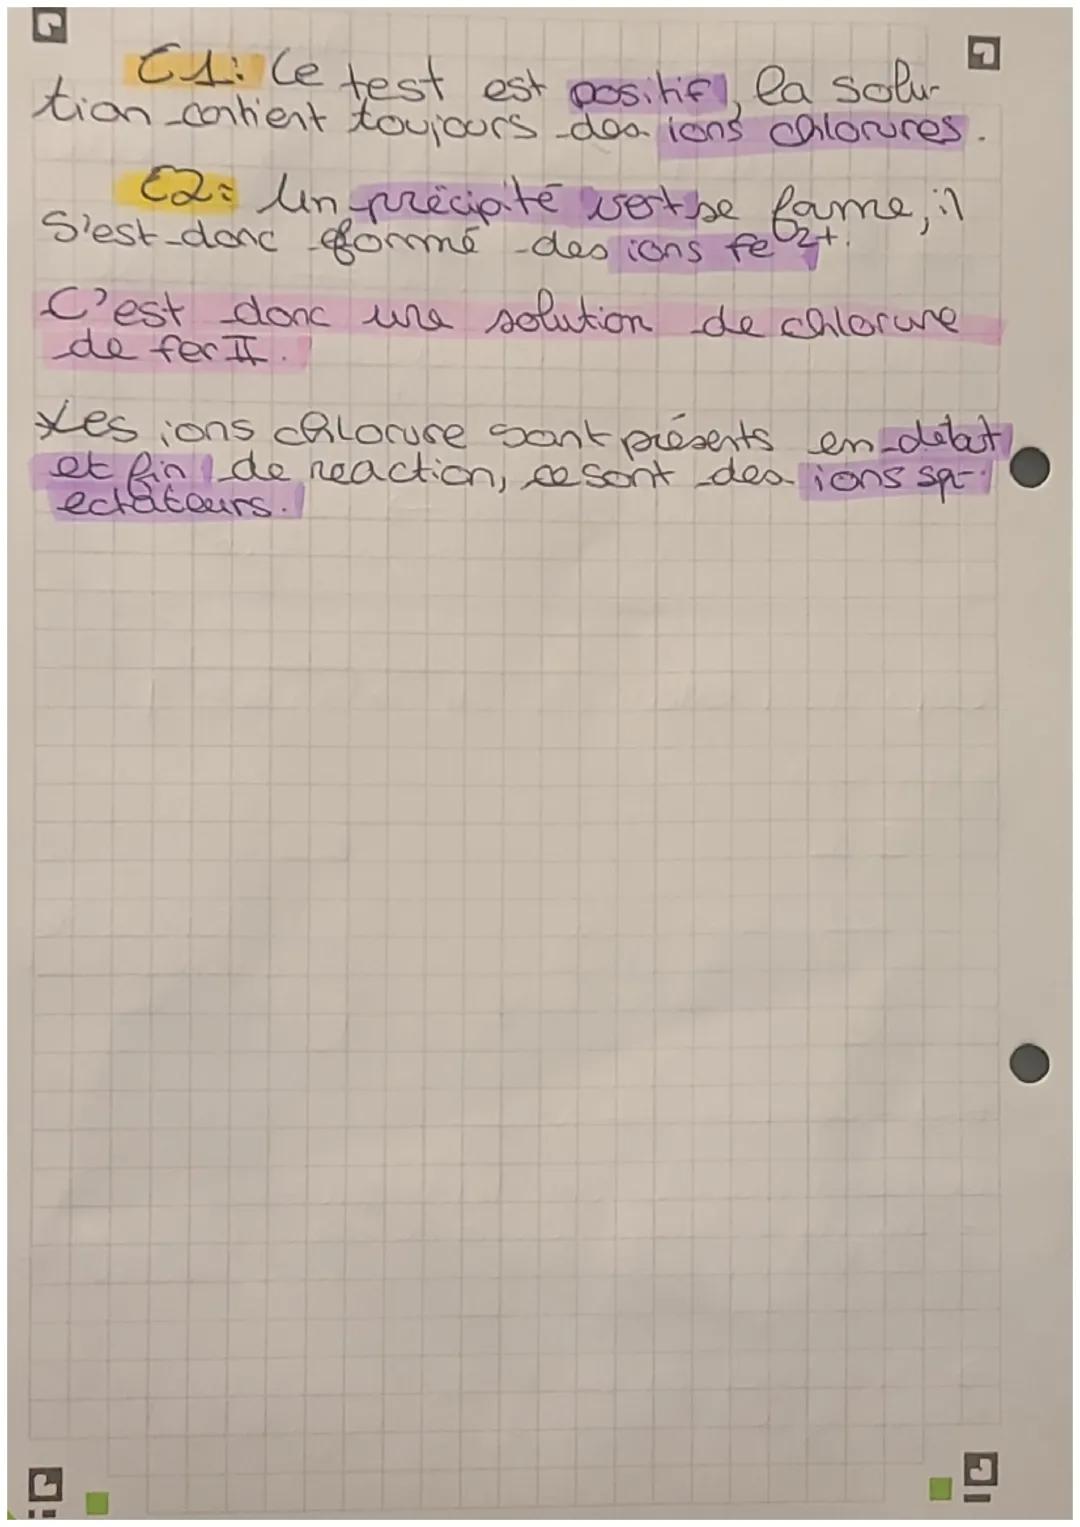 C1: Ce test est positif, la solu-
tion contient toujours des ions chlorures.
C2: Un précipité vert se forme, il
s'est donc formé des ions fe2+.
C'est donc une solution de chlorure
de fer II.
*Les ions chlorure sont présents en début
et fin de reaction, ce sont des ions sp-
ectateurs.